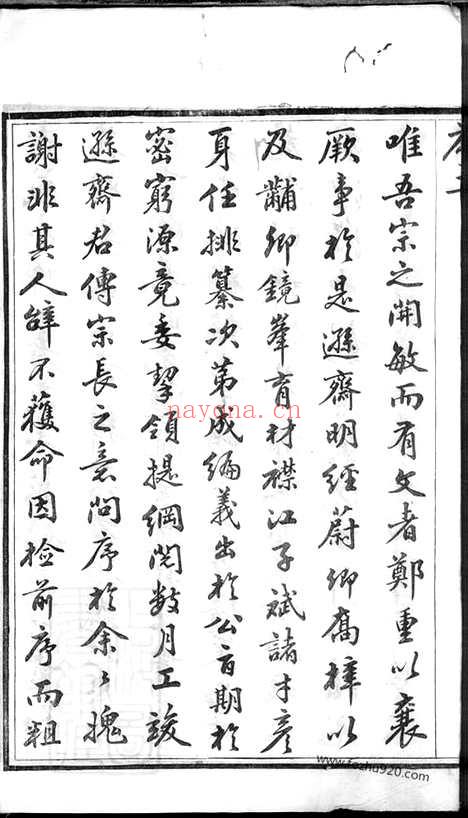 唯吾宗之開敏而有文者鄭重以襄
厥事於是遜齋明經蔚卿喬梓以
及黼卿鏡峯育材襟江子斌諸才彥
身任排纂次第成編義出於公言期於
密窮源竟委挈領提綱閱數月工竣
遜齋君傳宗長之意問序於余余愧
謝非其人辭不獲命因檢前序而粗
nayona.cn
www.fozhu920.com